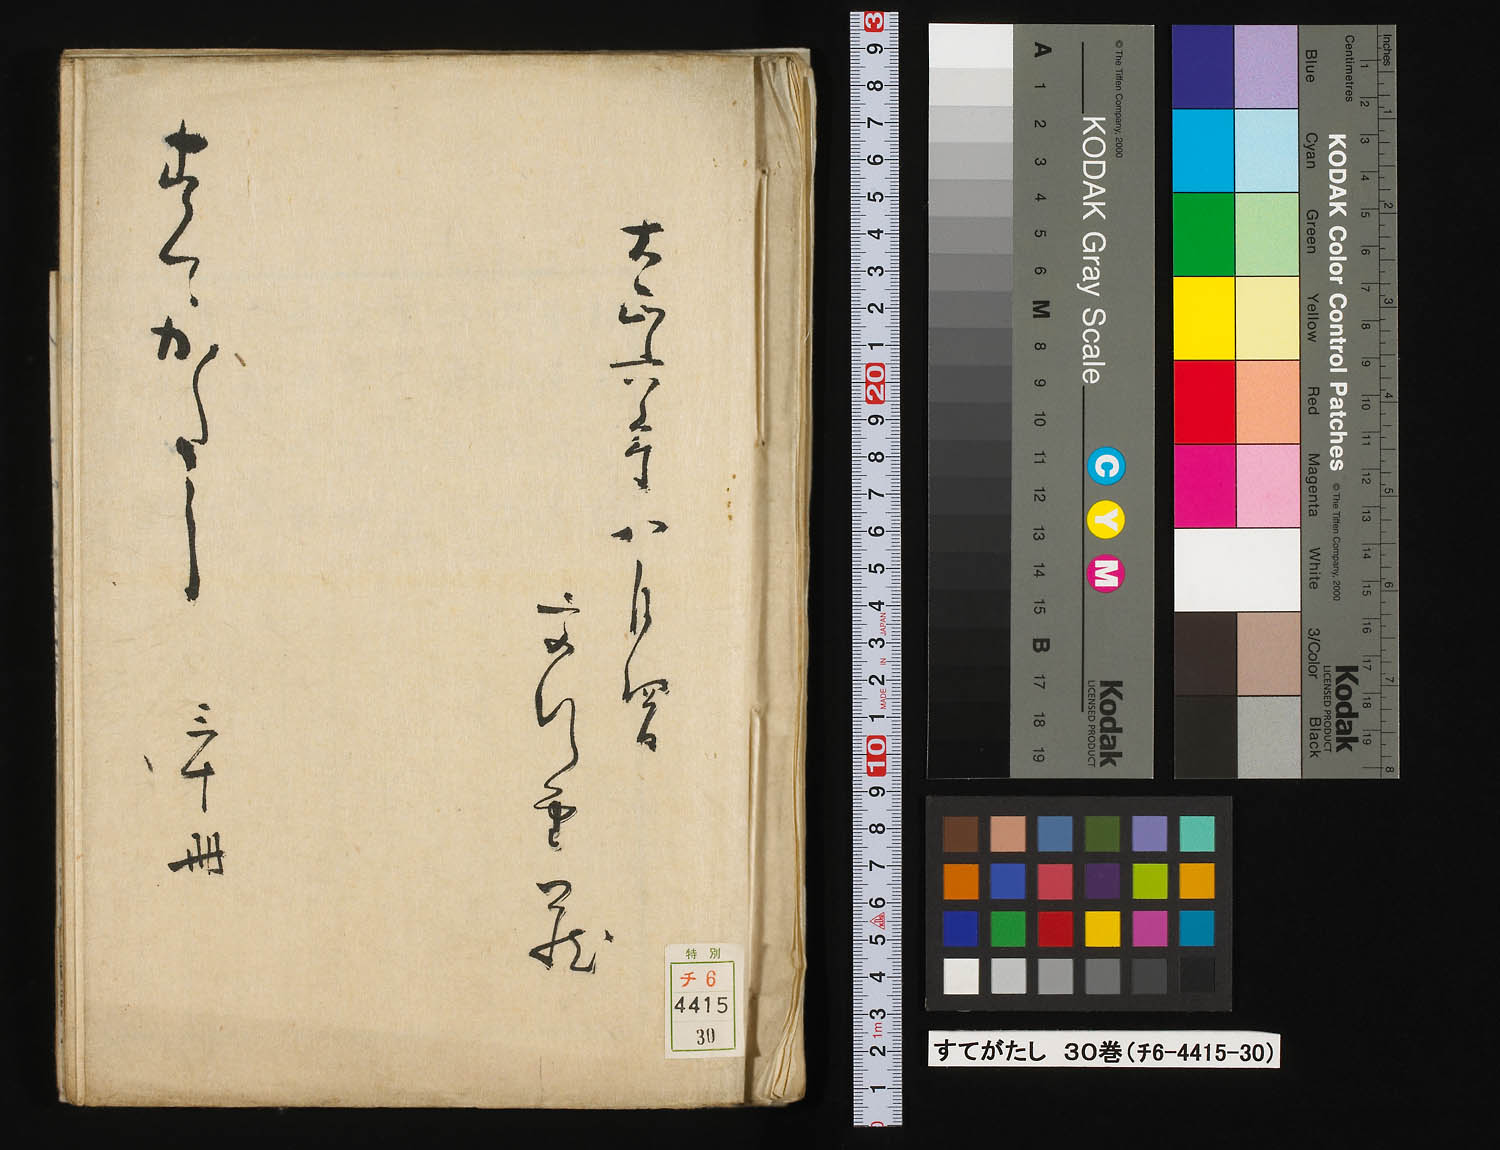 すてかたし 三十冊
大正六年八月習
文行堂蔵
特別
チ6
4415
30
© The Tiffen Company, 2000
KODAK Gray Scale
C Y M
Kodak
LICENSED PRODUCT
A 1 2 3 4 5 6 M 8 9 10 11 12 13 14 15 B 17 18 19
Inches
Centimetres
KODAK Color Control Patches
© The Tiffen Company, 2000
Kodak
LICENSED PRODUCT
Blue
Cyan
Green
Yellow
Red
Magenta
White
3/Color
Black
すてがたし 30巻(チ6-4415-30)